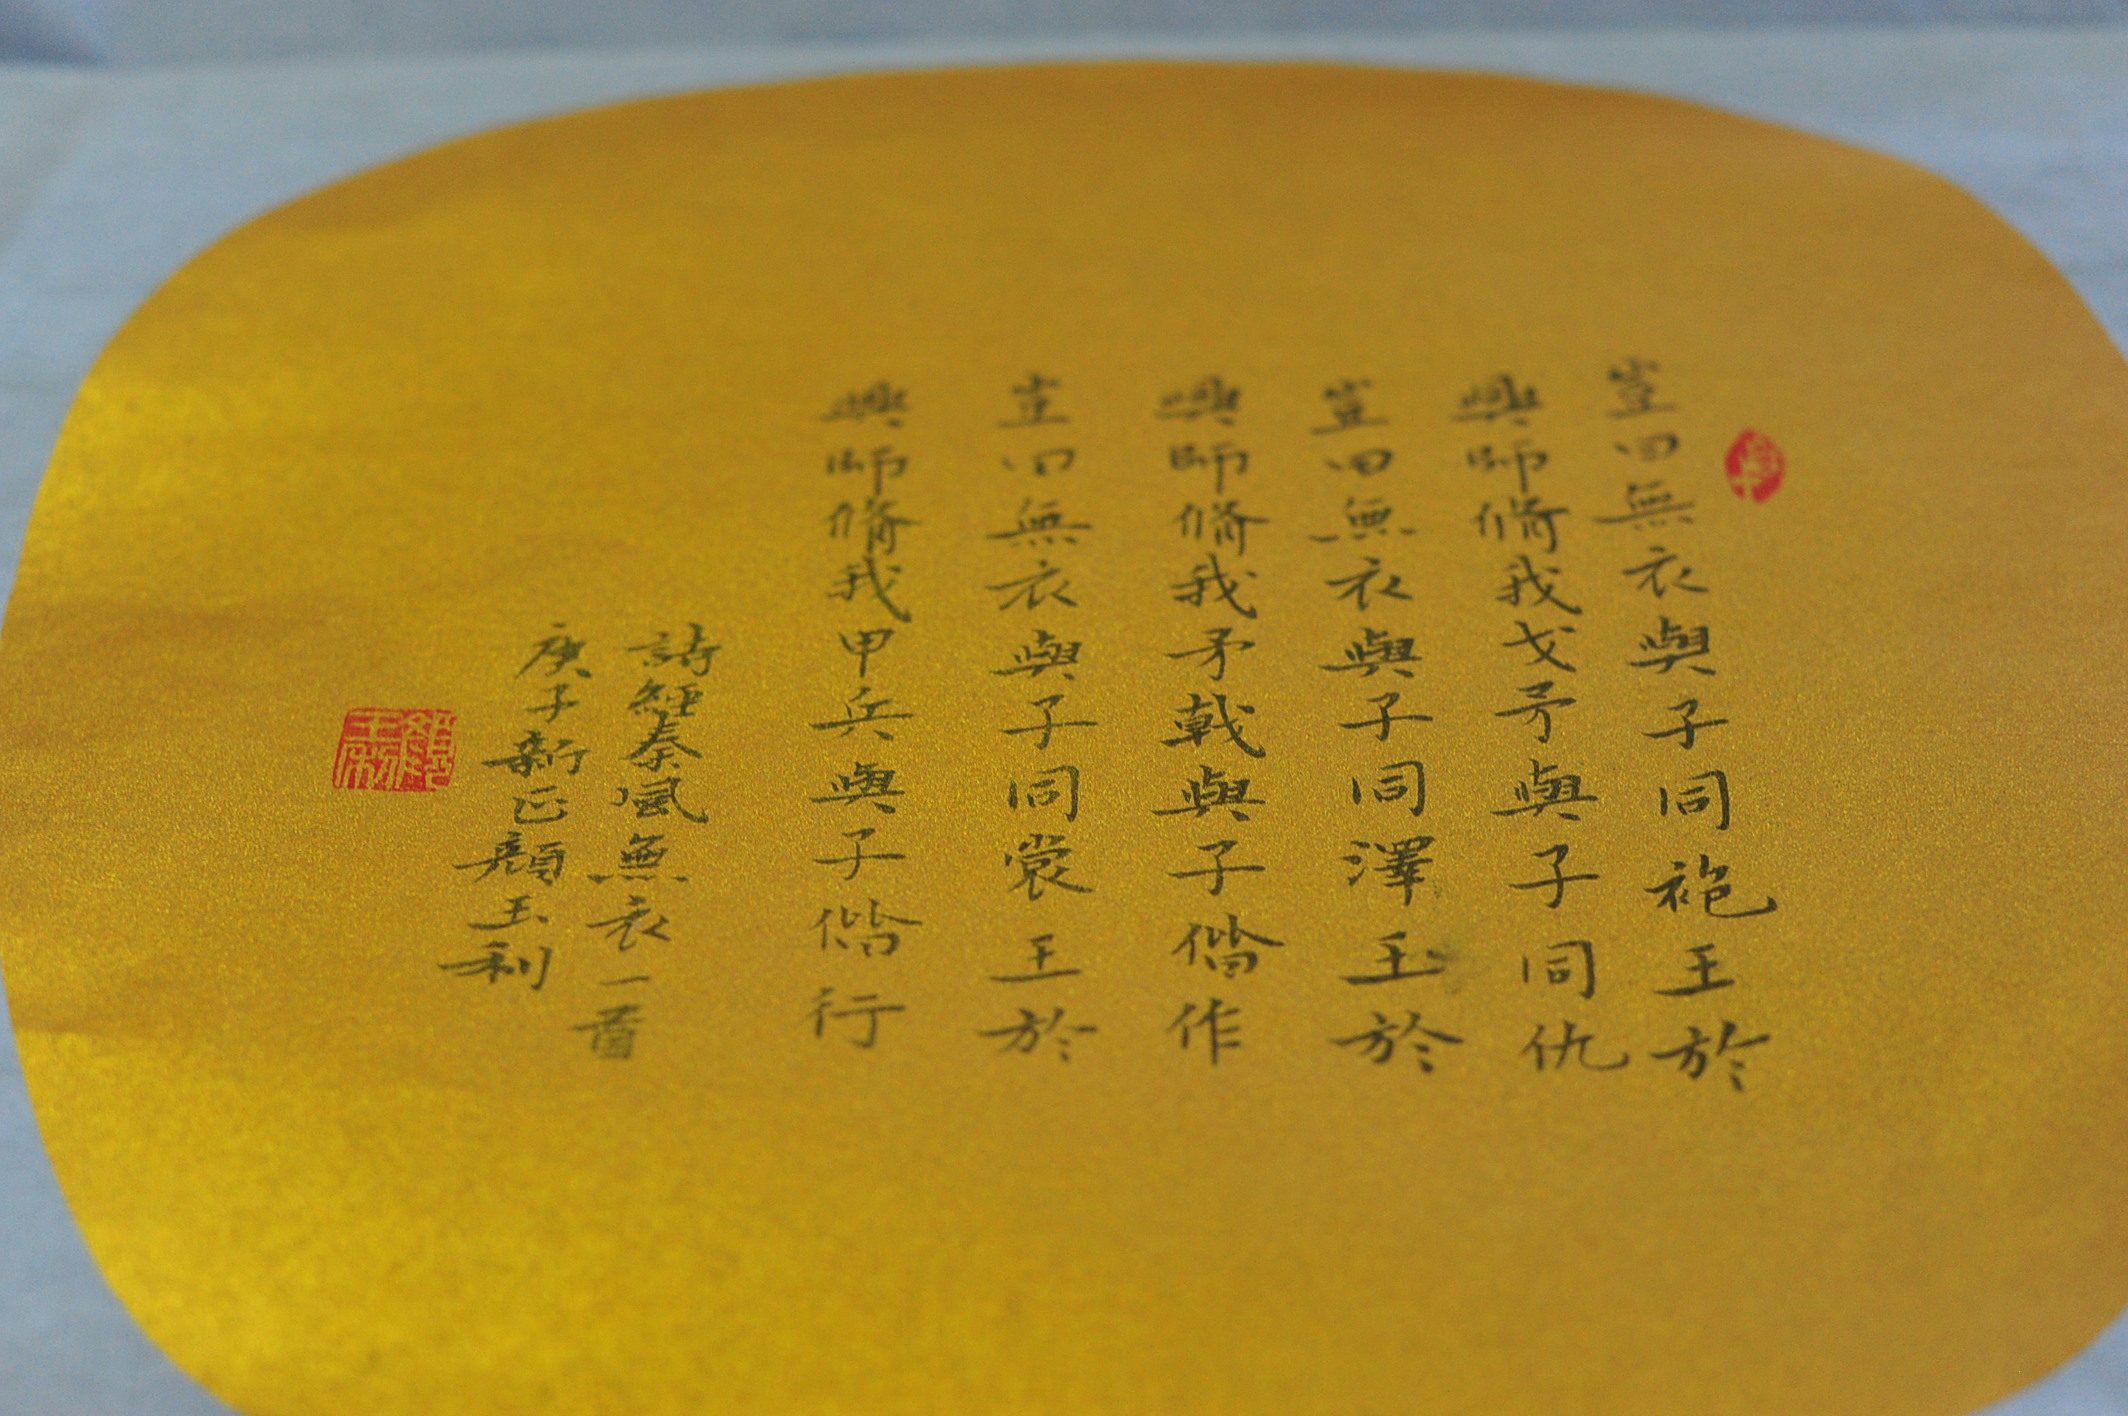 豈曰無衣與子同袍王於
興師脩我戈矛與子同仇
豈曰無衣與子同澤王於
興師脩我矛戟與子偕作
豈曰無衣與子同裳王於
興師脩我甲兵與子偕行
詩經秦風無衣一首
庚子新正顏玉利